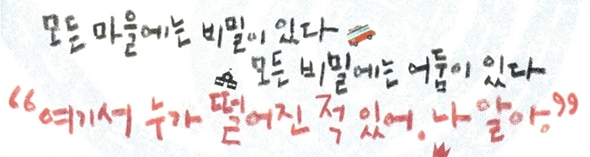 모든 마을에는 비밀이 있다
모든 비밀에는 어둠이 있다
“여기서 누가 떨어진 적 있어. 나 알아.”